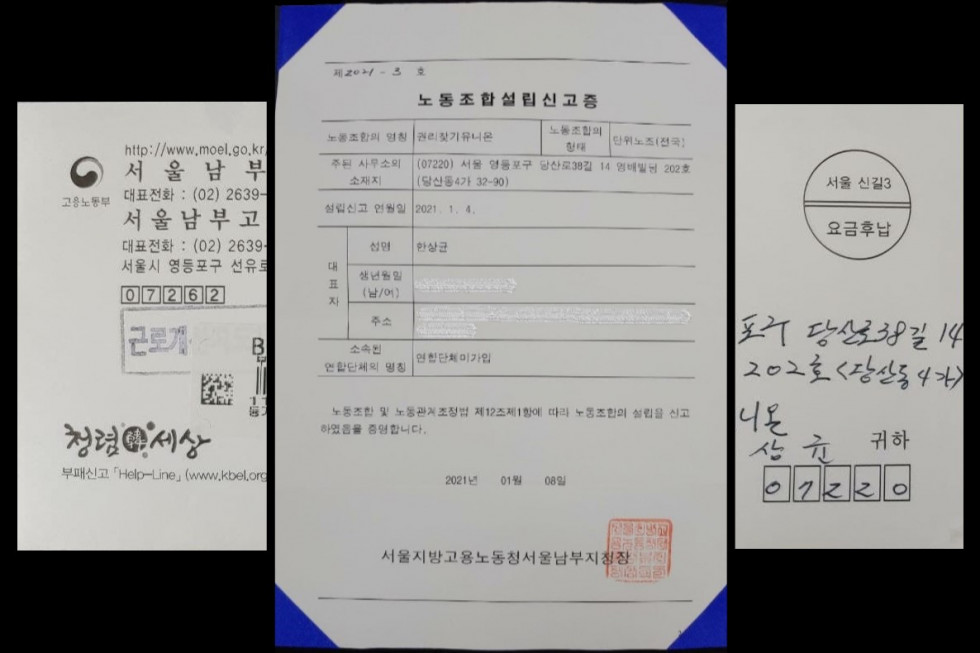 http://www.moel.go.kr
서울남부
대표전화 : (02) 2639-
서울남부고
대표전화 : (02) 2639-
서울시 영등포구 선유로
고용노동부
07262
근로개
청렴 세상
부패신고「Help-Line」(www.kbel.org
제2021-3 호
노동조합설립신고증
노동조합의 명칭 권리찾기유니온 노동조합의 형태 단위노조(전국)
주된 사무소의 소재지 (07220) 서울 영등포구 당산로38길 14 영배빌딩 202호
(당산동4가 32-90)
설립신고 연월일 2021. 1. 4.
대표자
성명 한상균
생년월일
(남/여)
주소
소속된
연합단체의 명칭 연합단체미가입
노동조합 및 노동관계조정법 제12조제1항에 따라 노동조합의 설립을 신고
하였음을 증명합니다.
2021년 01월 08일
서울지방고용노동청서울남부지청장
서울 신길3
요금후납
포구 당산로38길 14
202호 <당산동4가>
니온
상균 귀하
07220